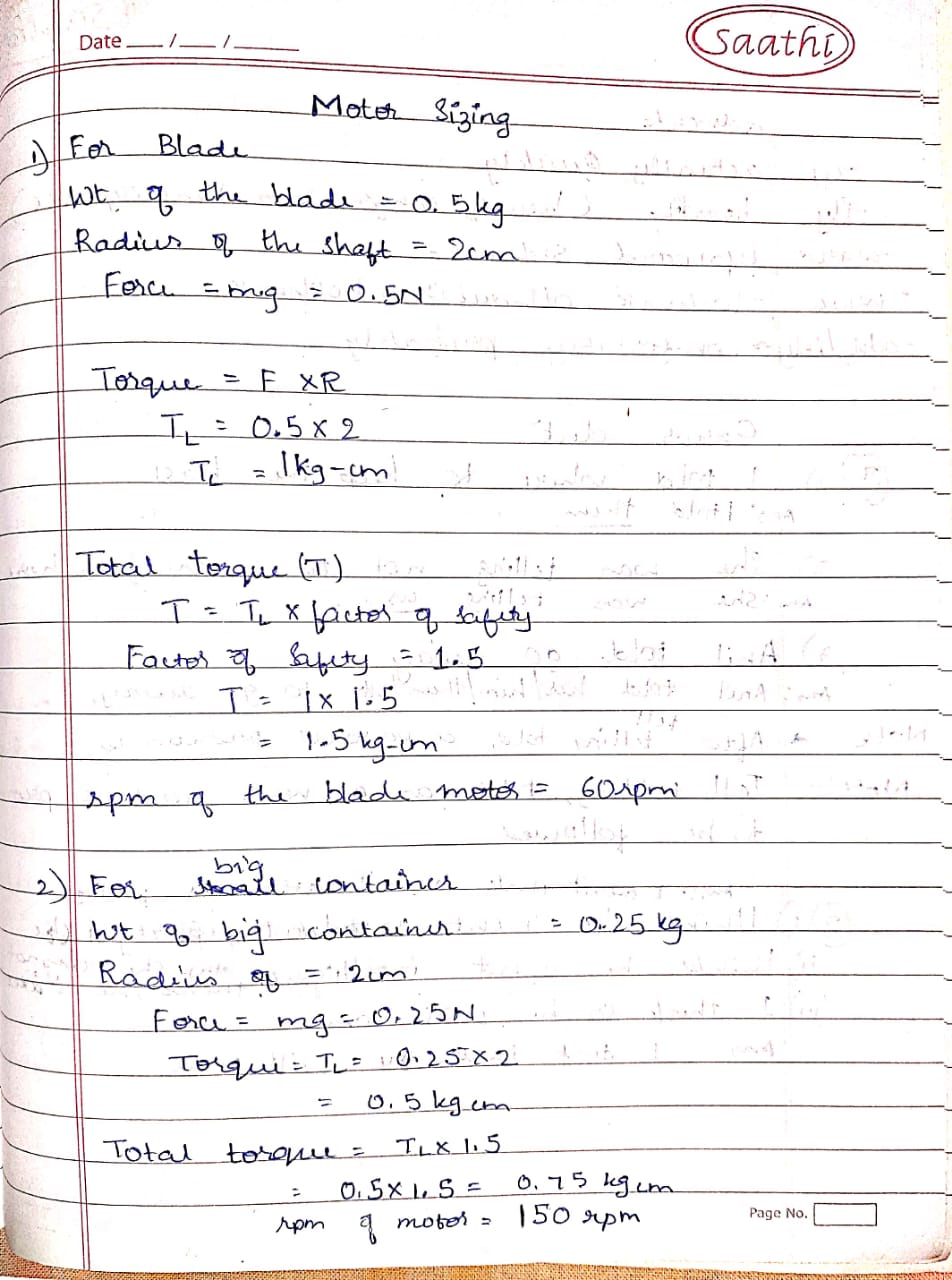 Date / /
Saathi
Motor Sizing
1) For Blade
Wt of the blade = 0.5kg
Radius of the shaft = 2cm
Force = mg = 0.5N
Torque = F x R
TL = 0.5 x 2
TL = 1kg-cm
Total torque (T)
T = TL x factor of safety
Factor of Safety = 1.5
T = 1 x 1.5
= 1.5 kg-cm
rpm of the blade motor = 60rpm
big
2) For small container
Wt of big container = 0.25 kg
Radius of = 2cm
Force = mg = 0.25N
Torque = TL = 0.25 x 2
= 0.5 kg cm
Total torque = TL x 1.5
= 0.5 x 1.5 = 0.75 kgcm
rpm of motor = 150 rpm
Page No.